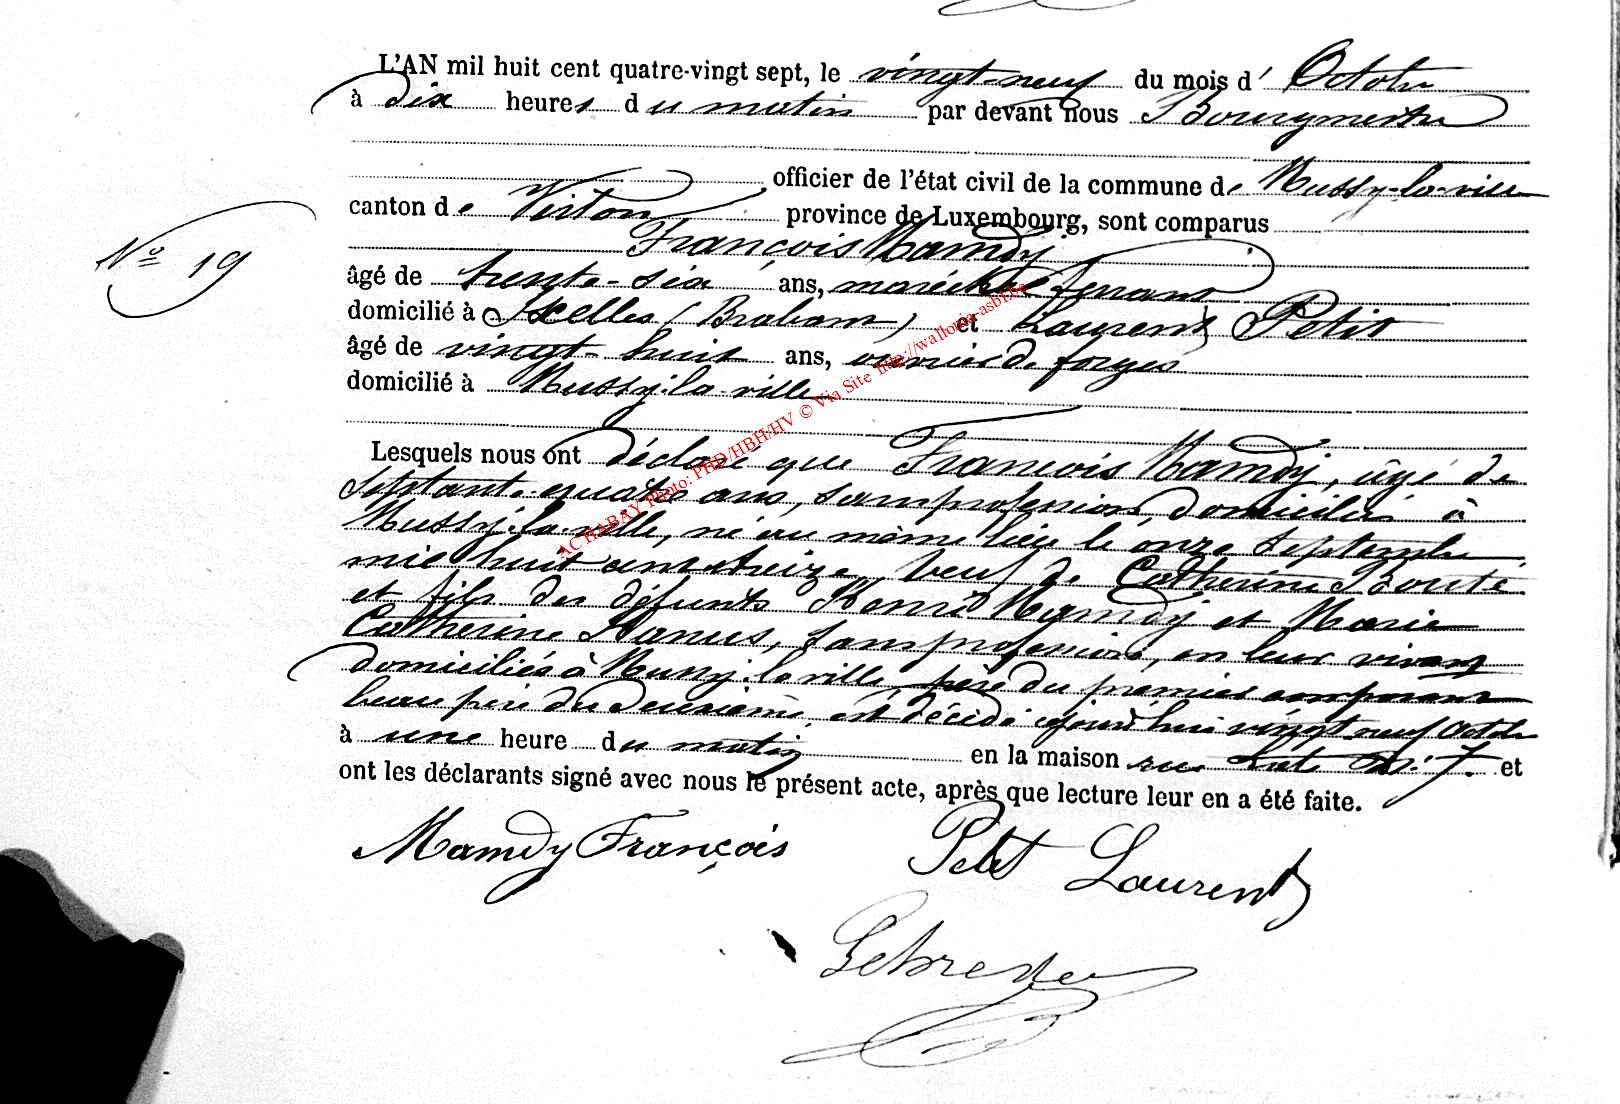 L'AN mil huit cent quatre-vingt sept, le vingt-neuf du mois d' Octobre
à dix heures du matin par devant nous Bourgmestre
officier de l'état civil de la commune de Mussy-la-ville
canton de Virton province de Luxembourg, sont comparus
François Mamdy
N° 19
âgé de trente-six ans, maréchal ferrant
domicilié à Ixelles (Brabant) et Laurent Petit
âgé de vingt-huit ans, ouvrier de forges
domicilié à Mussy-la-ville
Lesquels nous ont déclaré que François Mamdy, âgé de
septante-quatre ans, sans profession, domicilié à
Mussy-la-ville, né au même lieu le onze septembre
mil huit cent treize, veuf de Catherine Bonté
et fils des défunts Henri Mamdy et Marie
Catherine Hanus, sans profession, en leur vivant
domiciliés à Mussy-la-ville, père du premier comparant
beau père du deuxième, est décédé aujourd'hui vingt neuf Octobre
à une heure du matin en la maison rue n° 7. et
ont les déclarants signé avec nous le présent acte, après que lecture leur en a été faite.
Mamdy François Petit Laurent
AC HABAY Photo: PHD/HBH/HV © Via Site http://wallonia-asbl.be